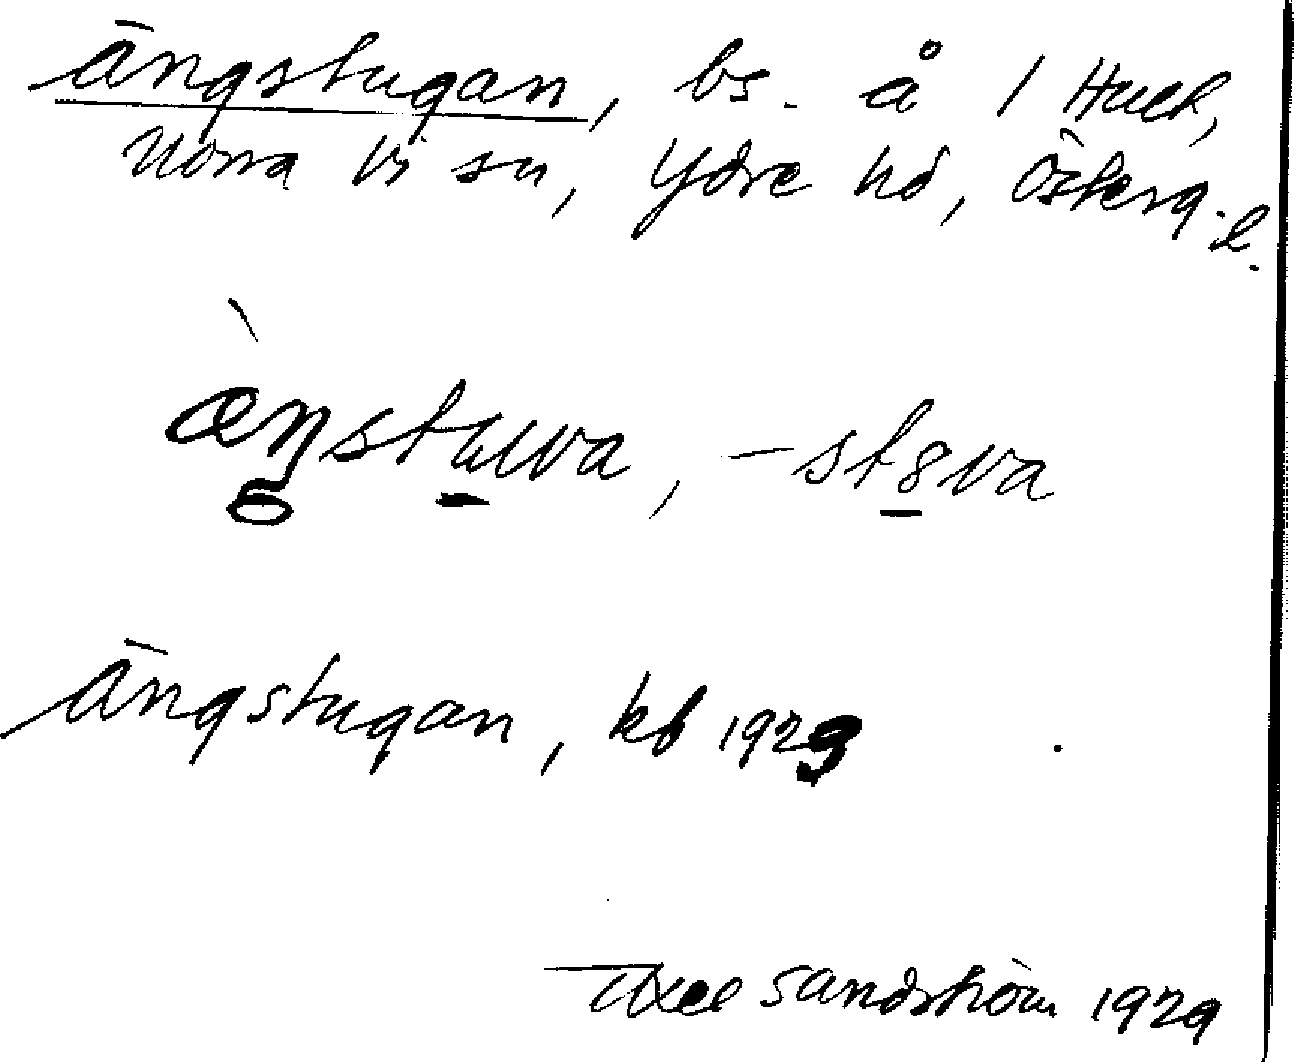 Ängstugan, bs. å 1 Hult,
Norra Vi sn, Ydre hd, Österg. l.
æ̀ŋstuva, -st8va
Ängstugan, kb 1929
Axel Sandström 1929